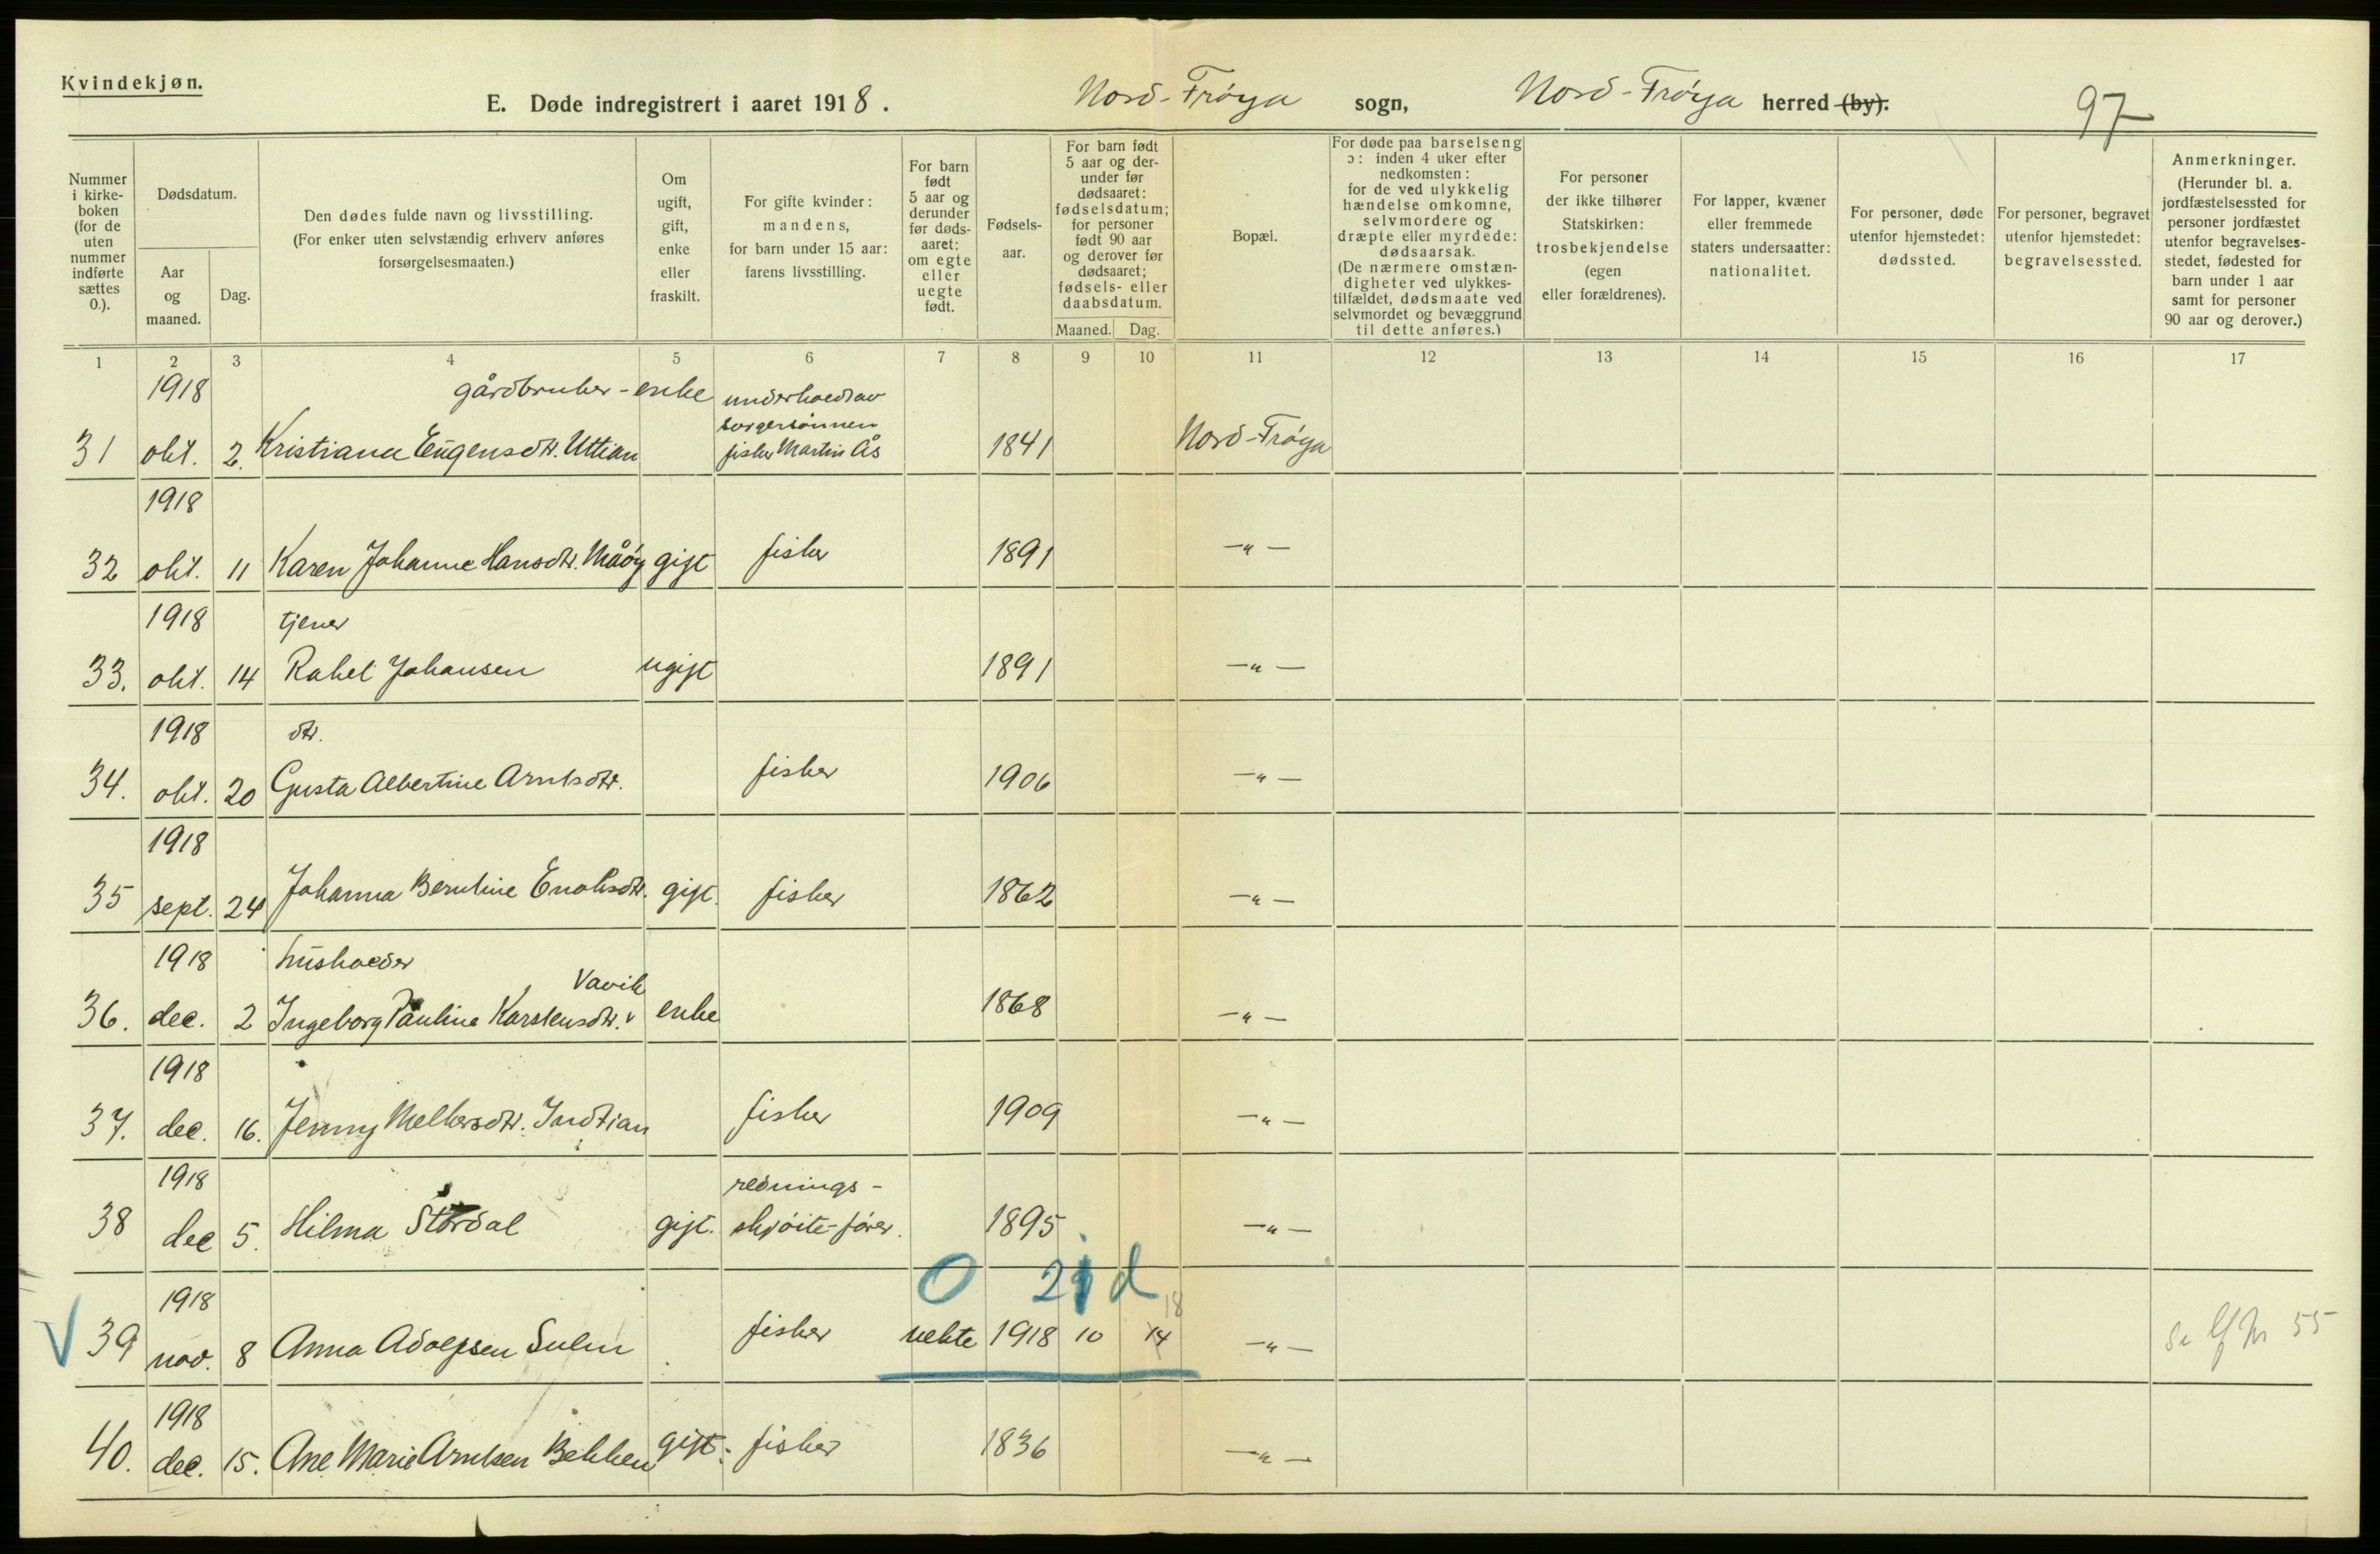 Kvindekjøn.
E. Døde indregistrert i aaret 1918. Nord-Frøya sogn, Nord-Frøya herred (by). 97
Nummer i kirke-boken (for de uten nummer indførte sættes 0.).
Dødsdatum.
Aar og maaned.
Dag.
Den dødes fulde navn og livsstilling.
(For enker uten selvstændig erhverv anføres
forsørgelsesmaaten.)
Om ugift, gift, enke eller fraskilt.
For gifte kvinder:
mandens,
for barn under 15 aar:
farens livsstilling.
For barn født 5 aar og derunder før døds-aaret: om egte eller uegte født.
Fødsels-aar.
For barn født 5 aar og der-under før dødsaaret: fødselsdatum; for personer født 90 aar og derover før dødsaaret; fødsels- eller daabsdatum.
Maaned. Dag.
Bopæl.
For døde paa barselseng
ɔ: inden 4 uker efter
nedkomsten:
for de ved ulykkelig
hændelse omkomne,
selvmordere og
dræpte eller myrdede:
dødsaarsak.
(De nærmere omstæn-
digheter ved ulykkes-
tilfældet, dødsmaate ved
selvmordet og bevæggrund
til dette anføres.)
For personer
der ikke tilhører
Statskirken:
trosbekjendelse
(egen
eller forældrenes).
For lapper, kvæner
eller fremmede
staters undersaatter:
nationalitet.
For personer, døde
utenfor hjemstedet:
dødssted.
For personer, begravet
utenfor hjemstedet:
begravelsessted.
Anmerkninger.
(Herunder bl. a.
jordfæstelsessted for
personer jordfæstet
utenfor begravelses-
stedet, fødested for
barn under 1 aar
samt for personer
90 aar og derover.)
1 2 3 4 5 6 7 8 9 10 11 12 13 14 15 16 17
1918 gårdbruker-enke underholdt av
sørgesønnen
31 okt. 2. Kristiana Eugensdtr. Uttian fisker Martin Ås 1841 Nord-Frøya
1918
32 okt. 11 Karen Johanne Hansdtr. Måøy gift fisker 1891 —"—
1918 tjener
33. okt. 14 Rakel Johansen ugift 1891 —"—
1918 dtr.
34. okt. 20 Gusta Albertine Arntsdtr. fisker 1906 —"—
1918
35 sept. 24 Johanna Berntine Enoksdtr. gift. fisker 1862 —"—
1918 husholder
Vavik
36. dec. 2 Ingeborg Pauline Karstensdtr. v enke 1868 —"—
1918
37. dec. 16. Jenny Melkersdtr. Indtian fisker 1909 —"—
1918 rednings-
38 dec 5. Hilma Stordal gift. skjöite-fører. 1895 —"—
0 21 d
1918 18
V 39 nov. 8 Anna Adolfsen Sulen fisker uekte 1918 10 14 —"— Se lf nr 55
1918
40. dec. 15. Ane Marie Arntsen Bekken gift. fisker 1836 —"—